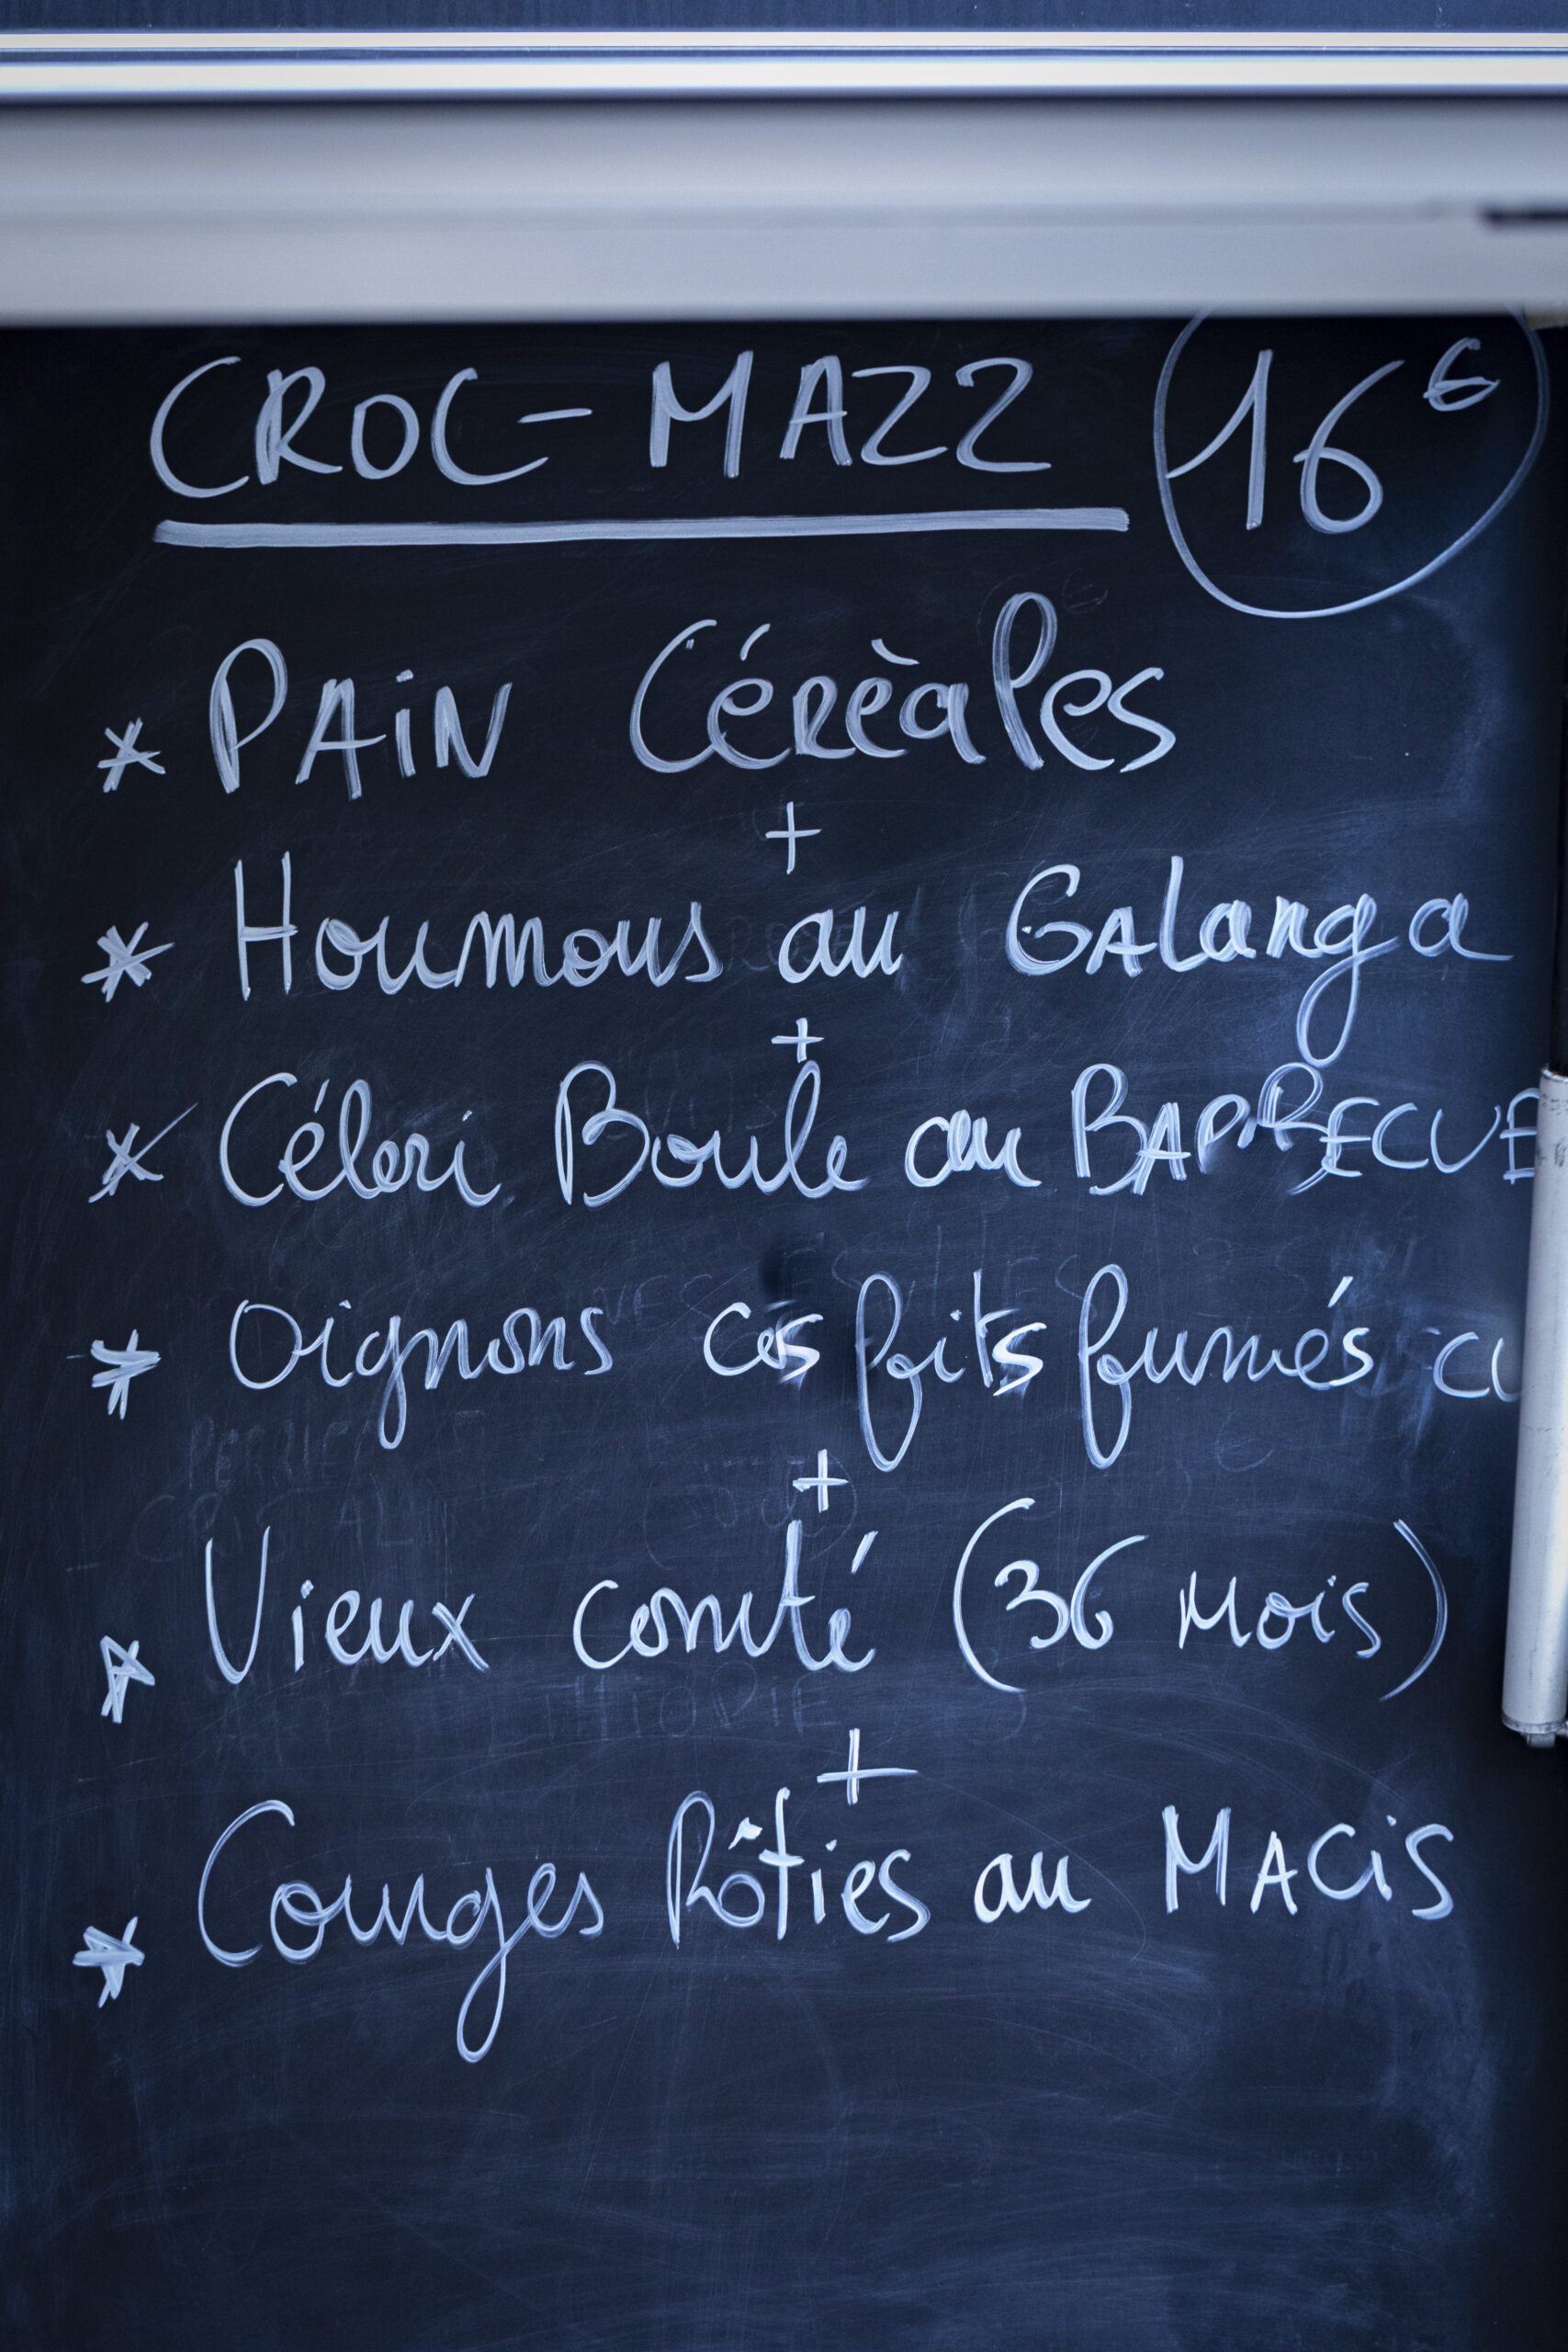 CROC-MAZZ 16€
* PAIN Céréàles
+
* Houmous au GALanga
+
* Céleri Boule au BARBECUE
* Oignons confits fumés cu
+
* Vieux comté (36 Mois)
+
* Courges Rôties au MACiS